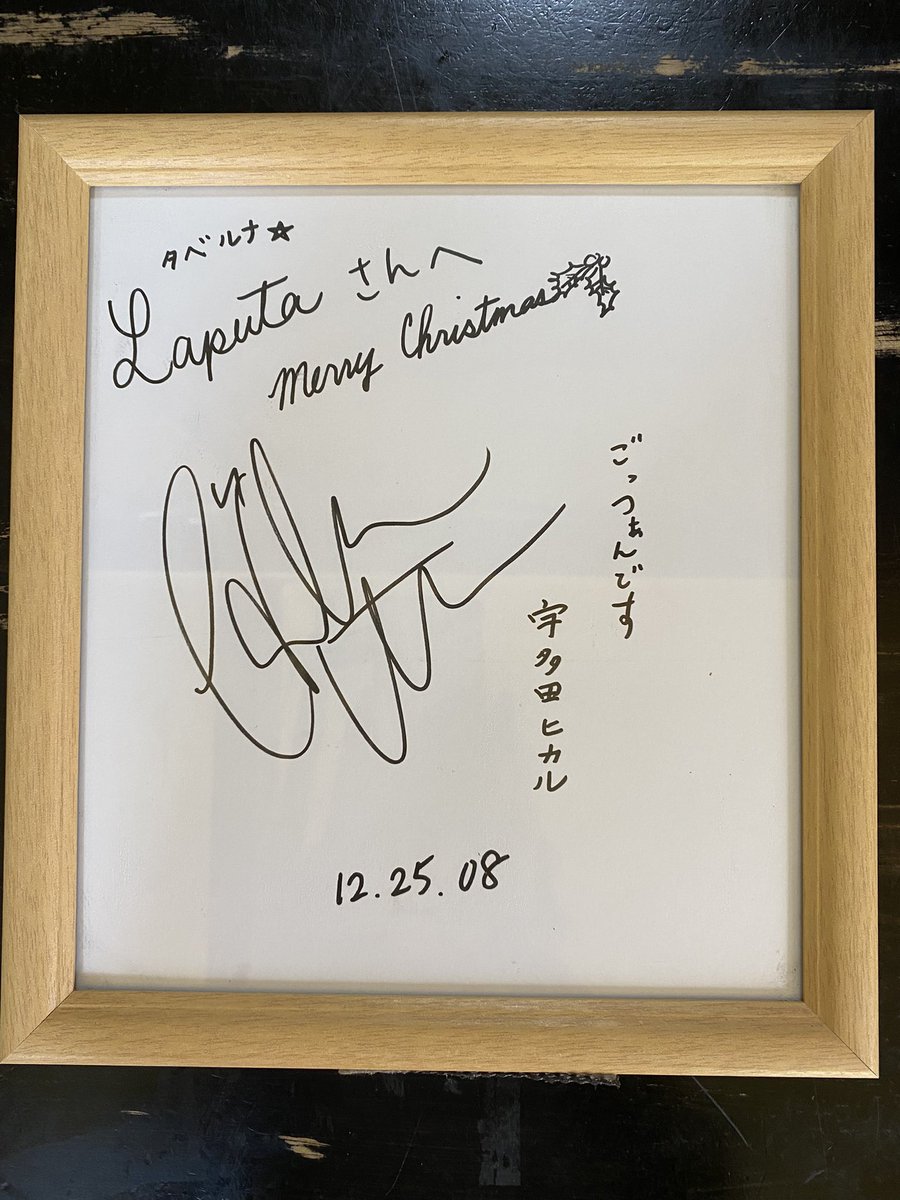 タベルナ☆
Laputa さんへ
Merry Christmas
ごっつぁんです
宇多田ヒカル
12.25.08